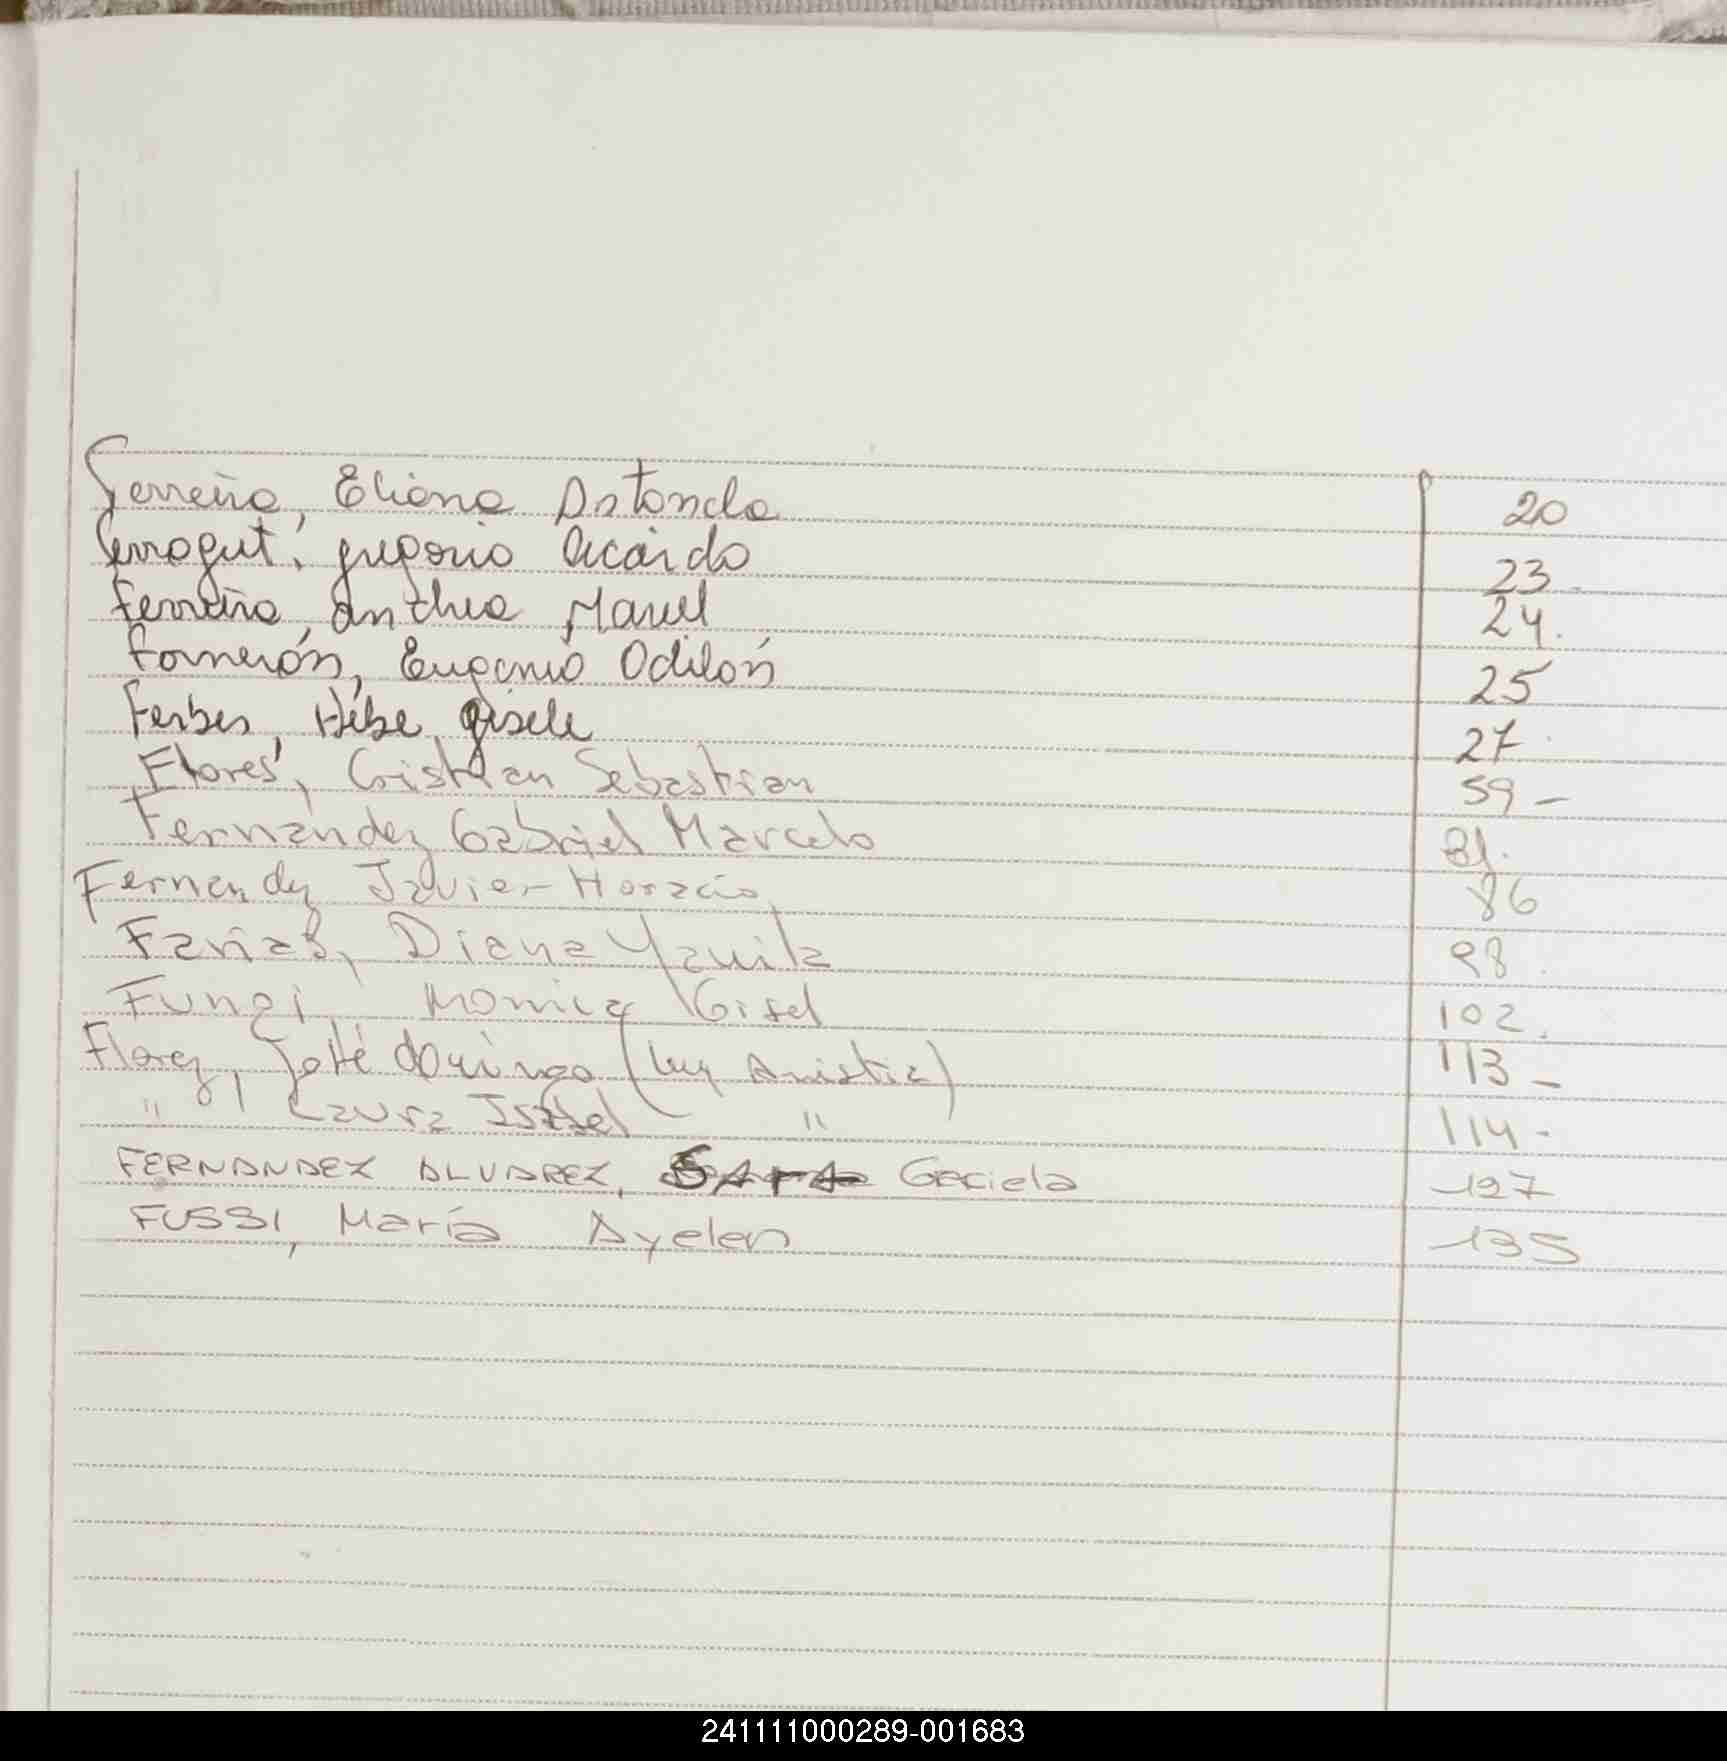 Ferreira, Eliana Astonda 20
Ferrogut, gregorio Ricardo 23.
Ferreira, anthea Marel 24.
Fornerón, Eugenio Odilón 25
Ferber, Hebe gisele 27.
Flores, Cristian Sebastian 59 -
Fernández Gabriel Marcelo 81.
Fernandez Javier Horacio 86
Farias, Diana Yanila 98.
Fungi Monica Gisel 102.
Florez, José domingo (Ley Amistia) 113 -
" , Laura Isabel " 114 -
FERNANDEZ ALVAREZ, Sara Graciela 127
FUSSI, María Ayelen 135
241111000289-001683